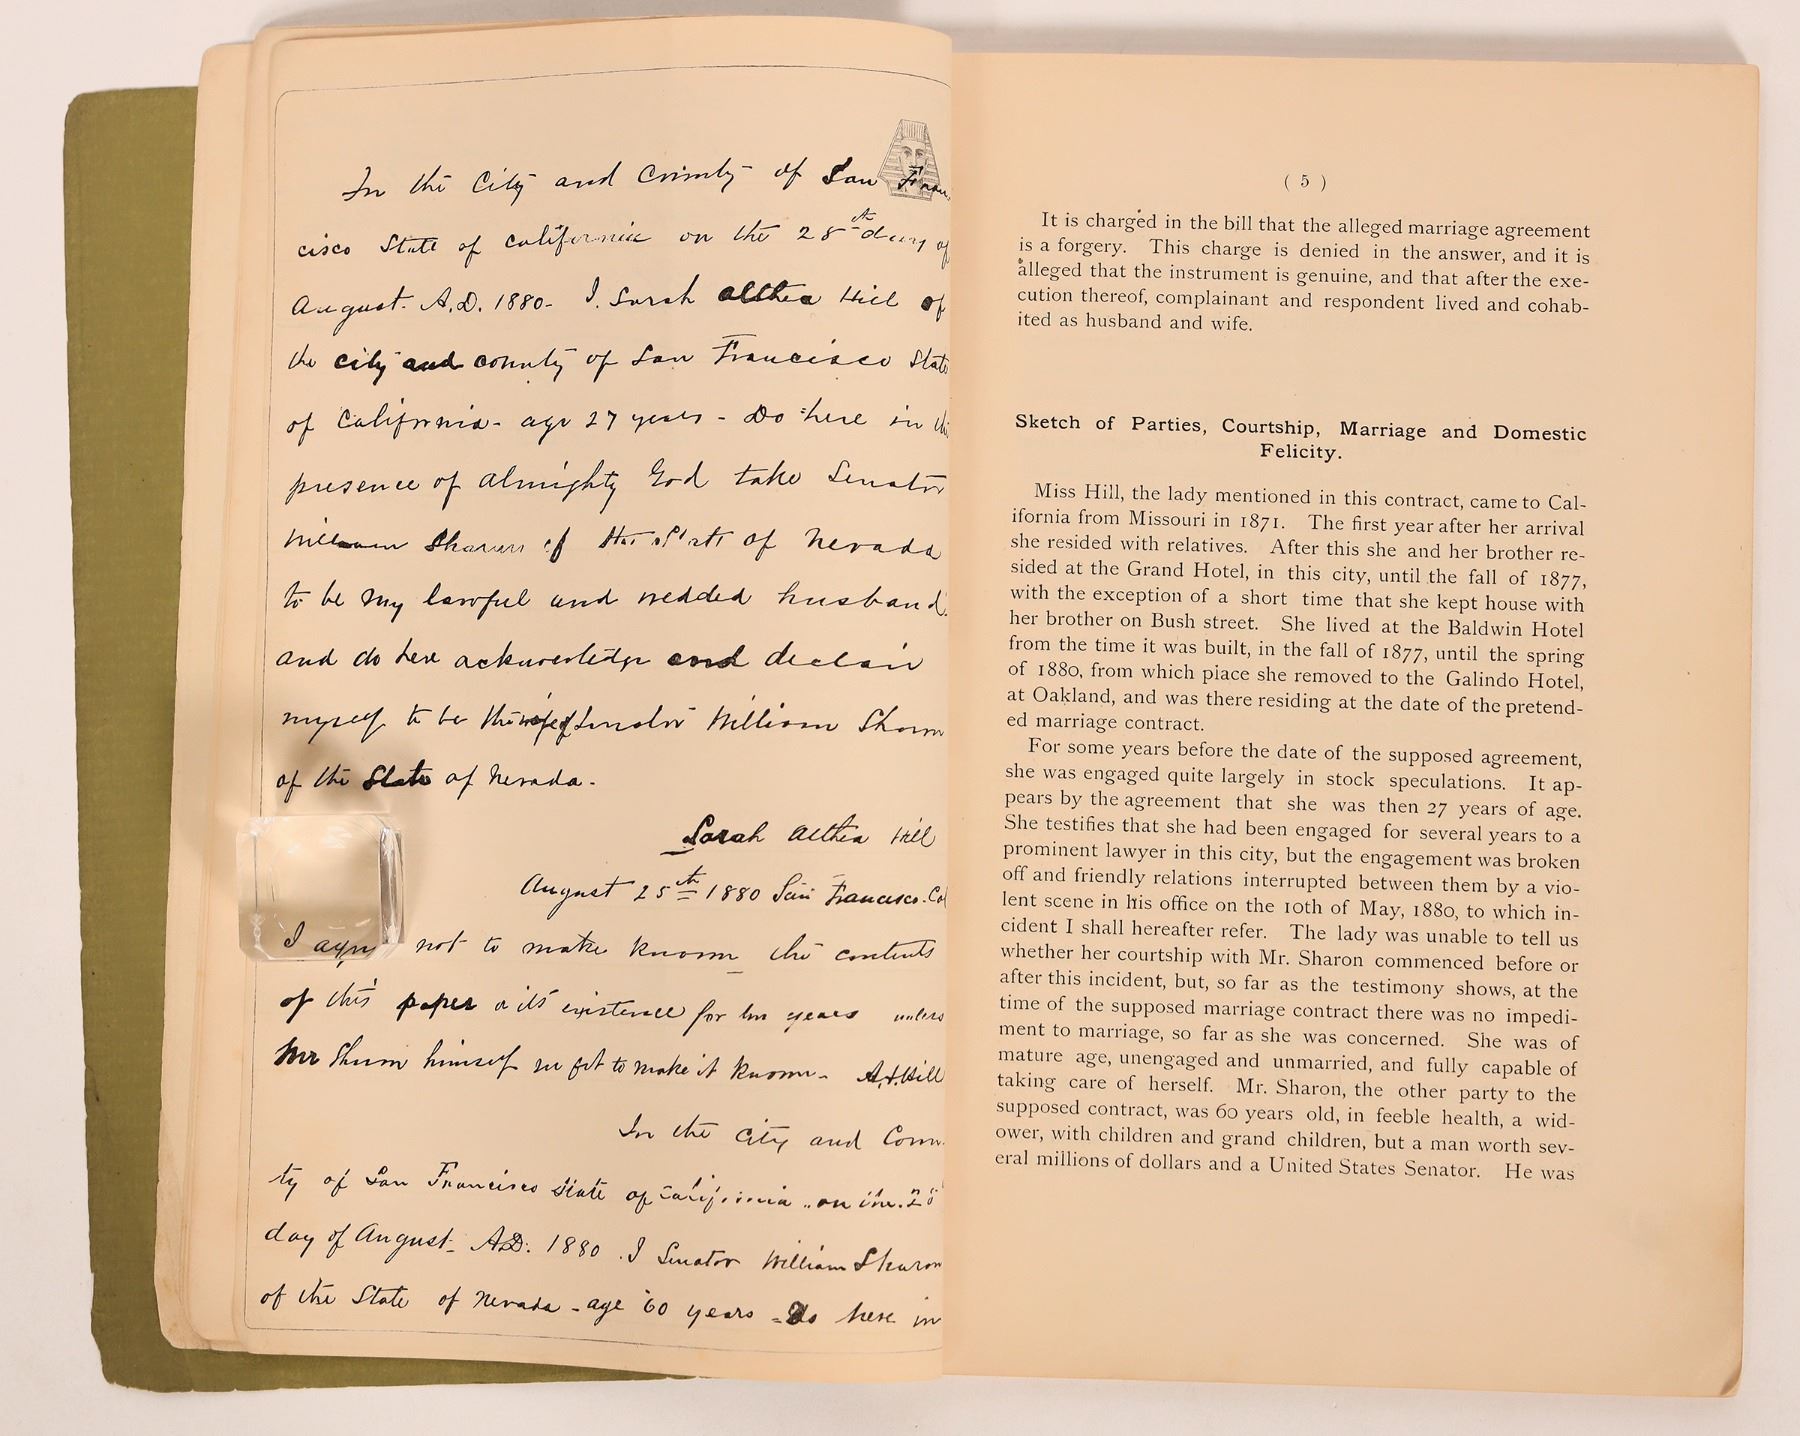 In the City and County of San Fran
cisco State of California on the 25th day of
August. A.D. 1880- I. Sarah Althea Hill of
the city and county of San Francisco State
of California- age 27 years - Do here in the
presence of Almighty God take Senator
William Sharon of the State of Nevada
to be my lawful and wedded husband
and do here acknowledge and declair
myself to be the wife of Senator William Sharon
of the State of Nevada-
Sarah Althea Hill
August 25th 1880 San Francisco. Cal
I agree not to make known the contents
of this paper or its existence for ten years unless
Mr Sharon himself see fit to make it known- S.A. Hill
In the City and Coun
ty of San Francisco State of California on the 25
day of August- A.D. 1880. I Senator William Sharon
of the State of Nevada - age 60 years - Do here in
( 5 )
It is charged in the bill that the alleged marriage agreement
is a forgery. This charge is denied in the answer, and it is
alleged that the instrument is genuine, and that after the exe-
cution thereof, complainant and respondent lived and cohab-
ited as husband and wife.
Sketch of Parties, Courtship, Marriage and Domestic
Felicity.
Miss Hill, the lady mentioned in this contract, came to Cal-
ifornia from Missouri in 1871. The first year after her arrival
she resided with relatives. After this she and her brother re-
sided at the Grand Hotel, in this city, until the fall of 1877,
with the exception of a short time that she kept house with
her brother on Bush street. She lived at the Baldwin Hotel
from the time it was built, in the fall of 1877, until the spring
of 1880, from which place she removed to the Galindo Hotel,
at Oakland, and was there residing at the date of the pretend-
ed marriage contract.
For some years before the date of the supposed agreement,
she was engaged quite largely in stock speculations. It ap-
pears by the agreement that she was then 27 years of age.
She testifies that she had been engaged for several years to a
prominent lawyer in this city, but the engagement was broken
off and friendly relations interrupted between them by a vio-
lent scene in his office on the 10th of May, 1880, to which in-
cident I shall hereafter refer. The lady was unable to tell us
whether her courtship with Mr. Sharon commenced before or
after this incident, but, so far as the testimony shows, at the
time of the supposed marriage contract there was no impedi-
ment to marriage, so far as she was concerned. She was of
mature age, unengaged and unmarried, and fully capable of
taking care of herself. Mr. Sharon, the other party to the
supposed contract, was 60 years old, in feeble health, a wid-
ower, with children and grand children, but a man worth sev-
eral millions of dollars and a United States Senator. He was